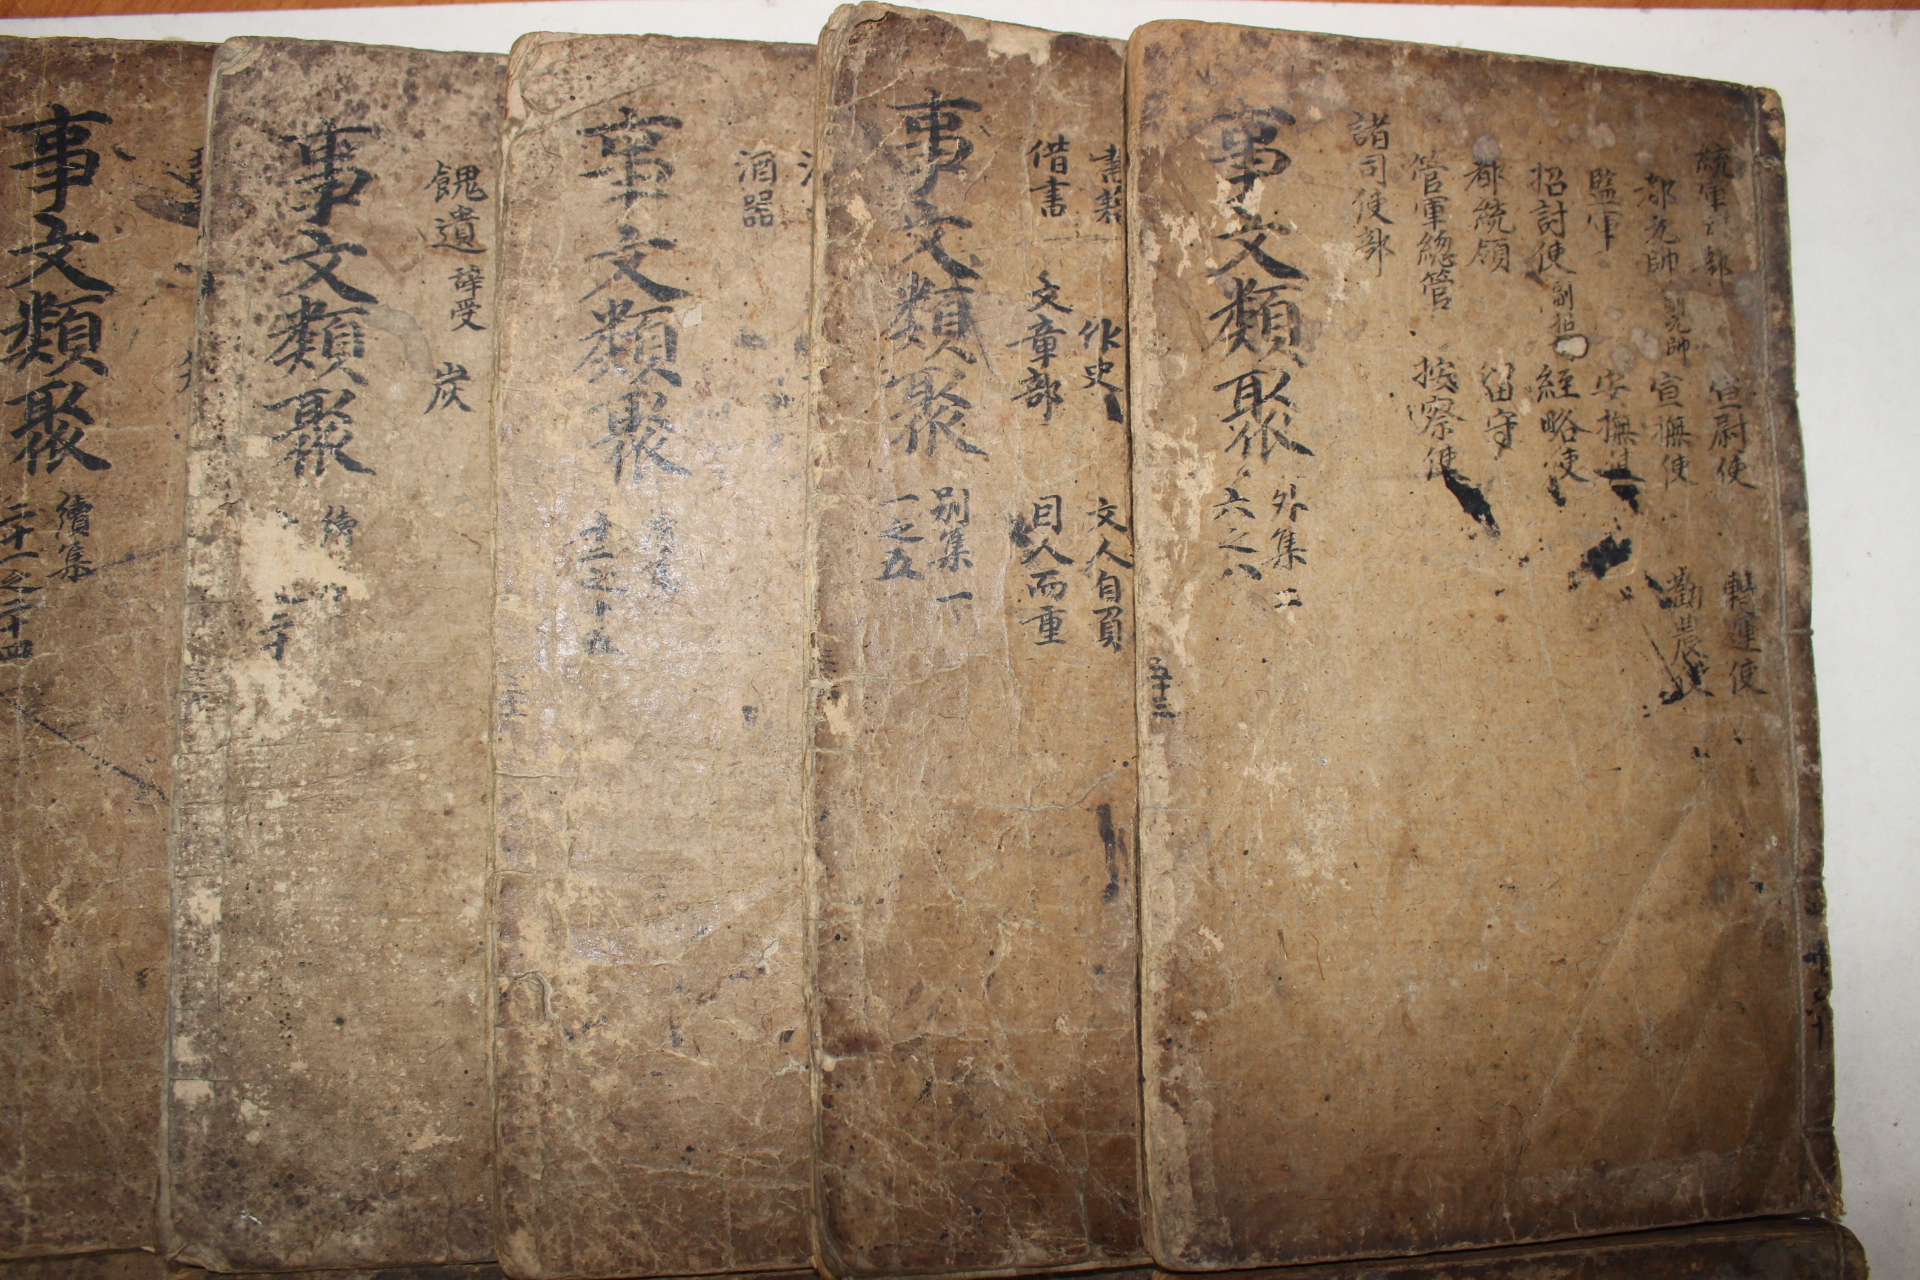 統軍 部
宣尉使
轉運使
都元帥 副元帥
宣撫使
勸農使
監軍
安撫使
招討使 副招
經略使
都統領
留守
管軍總管
按察使
諸司使部
事文類聚
外集 二
六之八
五十三
書籍
作史
文人自負
借書
文章部
因人而重
事文類聚
別集 一
一之五
酒器
事文類聚
十二之十五
餽遺 辞受
炭
事文類聚
續
二十
事文類聚
續集
二十一之二十四